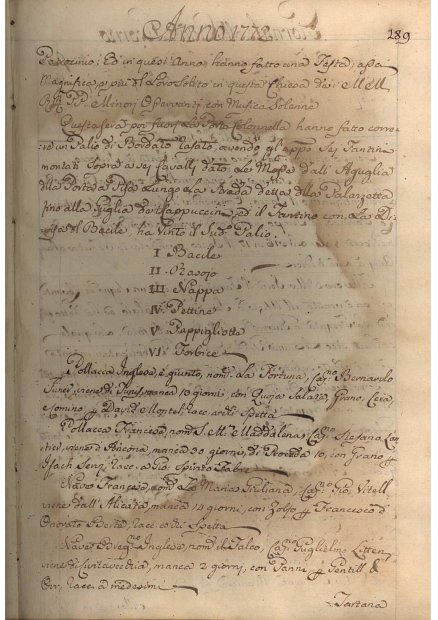 Anno 1782
189
Pellegrino; Ed in quest'Anno hanno fatto una Festa assai
Magnifica, più del Loro Solito in questa Chiesa de MM.
RR. PP. Minori Osservanti, con Musica Solenne
Questa sera poi fuori La Porta Colonnella hanno fatto corre
re un Palio di Bordato Lasato, avendo gl'appo Sej Fantini
montati sopra a Sej Cavalli, dato La Mossa dall' Aguglia
della Porta a Pisa Lungo La Strada detta della Palazzetta
fino alla Guglia de Cappuccini, ed il Fantino con La Di
visa del Bacile, ha Vinto il Sud.o Palio.
I Bacile
II Rasojo
III Nappa
IV Pettine
V Pappigliotte
VI Forbice
Pollacca Inglese, è giunto, nom.a La Fortuna, Cap.o Bernardo
viene di Tunis, manca 10 giorni, con Quoja Salate, Grano, Cera
e Comino p David Montel, Racc. Spetta
Pollacca Francese, nom.a S. M.a Maddalena, Cap.o Stefano
viene d'Ancona, manca 30 giorni, di 10, con Grano p
Racc. a Gio. Spirito
Navo Francese, nom.o La Maria Giuliana, Cap.o Gio. Vitell
viene dall' Alicata, manca 14 giorni, con Zolfo p Francesco d'
Onorato Berte, Racc. a chi Spetta
Nave Inglese, nom.a il Falco, Cap.o Guglielmo Litten,
viene di Civitavecchia, manca 2 giorni, con Panni p Gentill &
Orr, Racc. a medesimi
Tartana